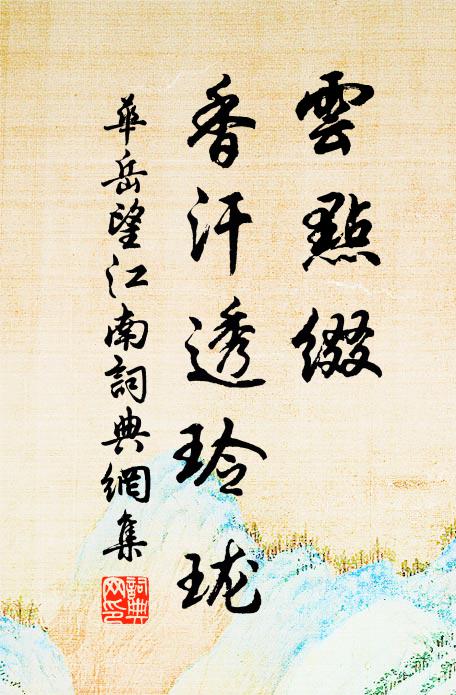 雲點綴
香汗透玲瓏
華岳望江南詞典網集
詞典
网印